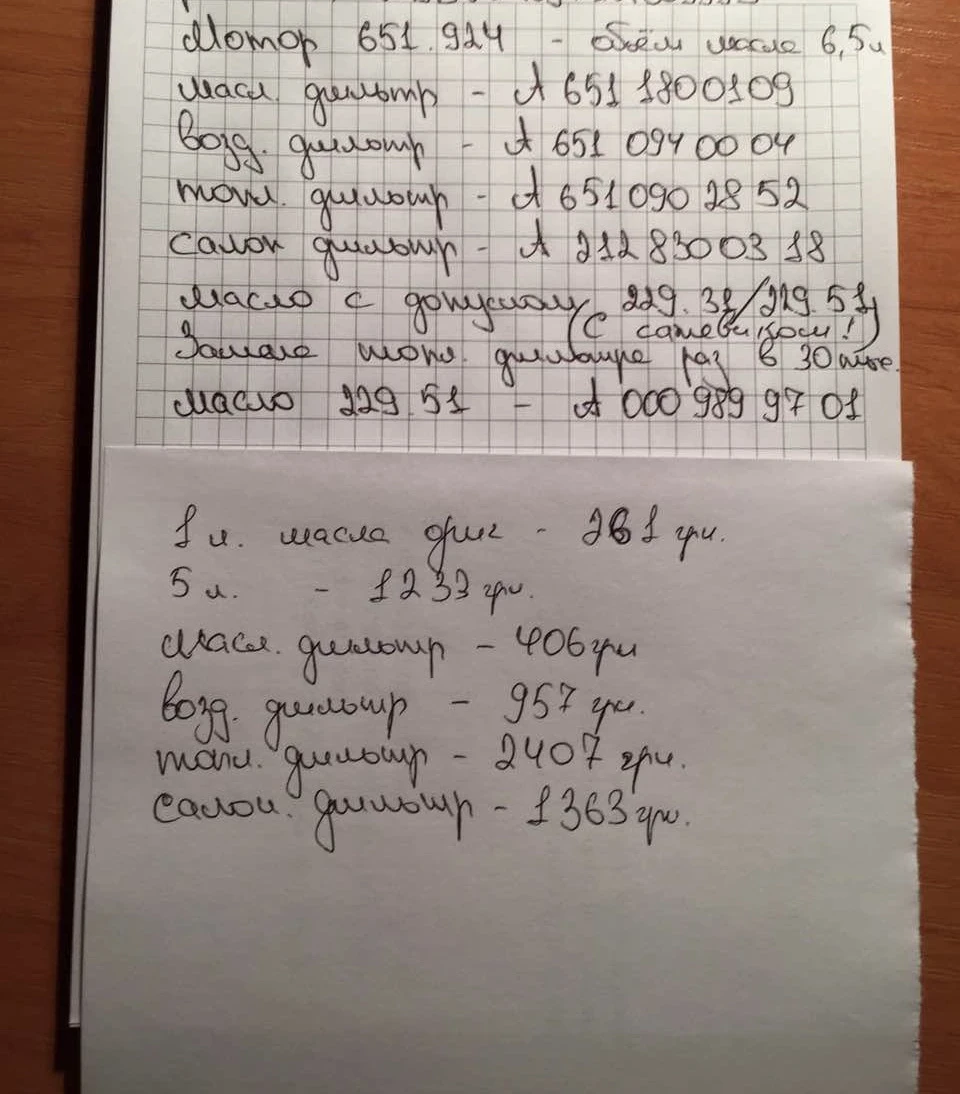 Мотор 651.924 - объём масла 6,5л
масл. фильтр - А 651 1800109
возд. фильтр - А 651 094 00 04
топл. фильтр - А 651 090 28 52
салон фильтр - А 212 83003 18
масло с допуском 229.31/229.51
(с сажевиком!)
Замена топл. фильтра раз в 30 тыс.
масло 229.51 - А 000 989 97 01
1 л. масла ориг - 261 грн.
5 л. - 1233 грн.
Масл. фильтр - 406 грн
возд. фильтр - 957 грн.
топл. фильтр - 2407 грн.
Салон. фильтр - 1363 грн.